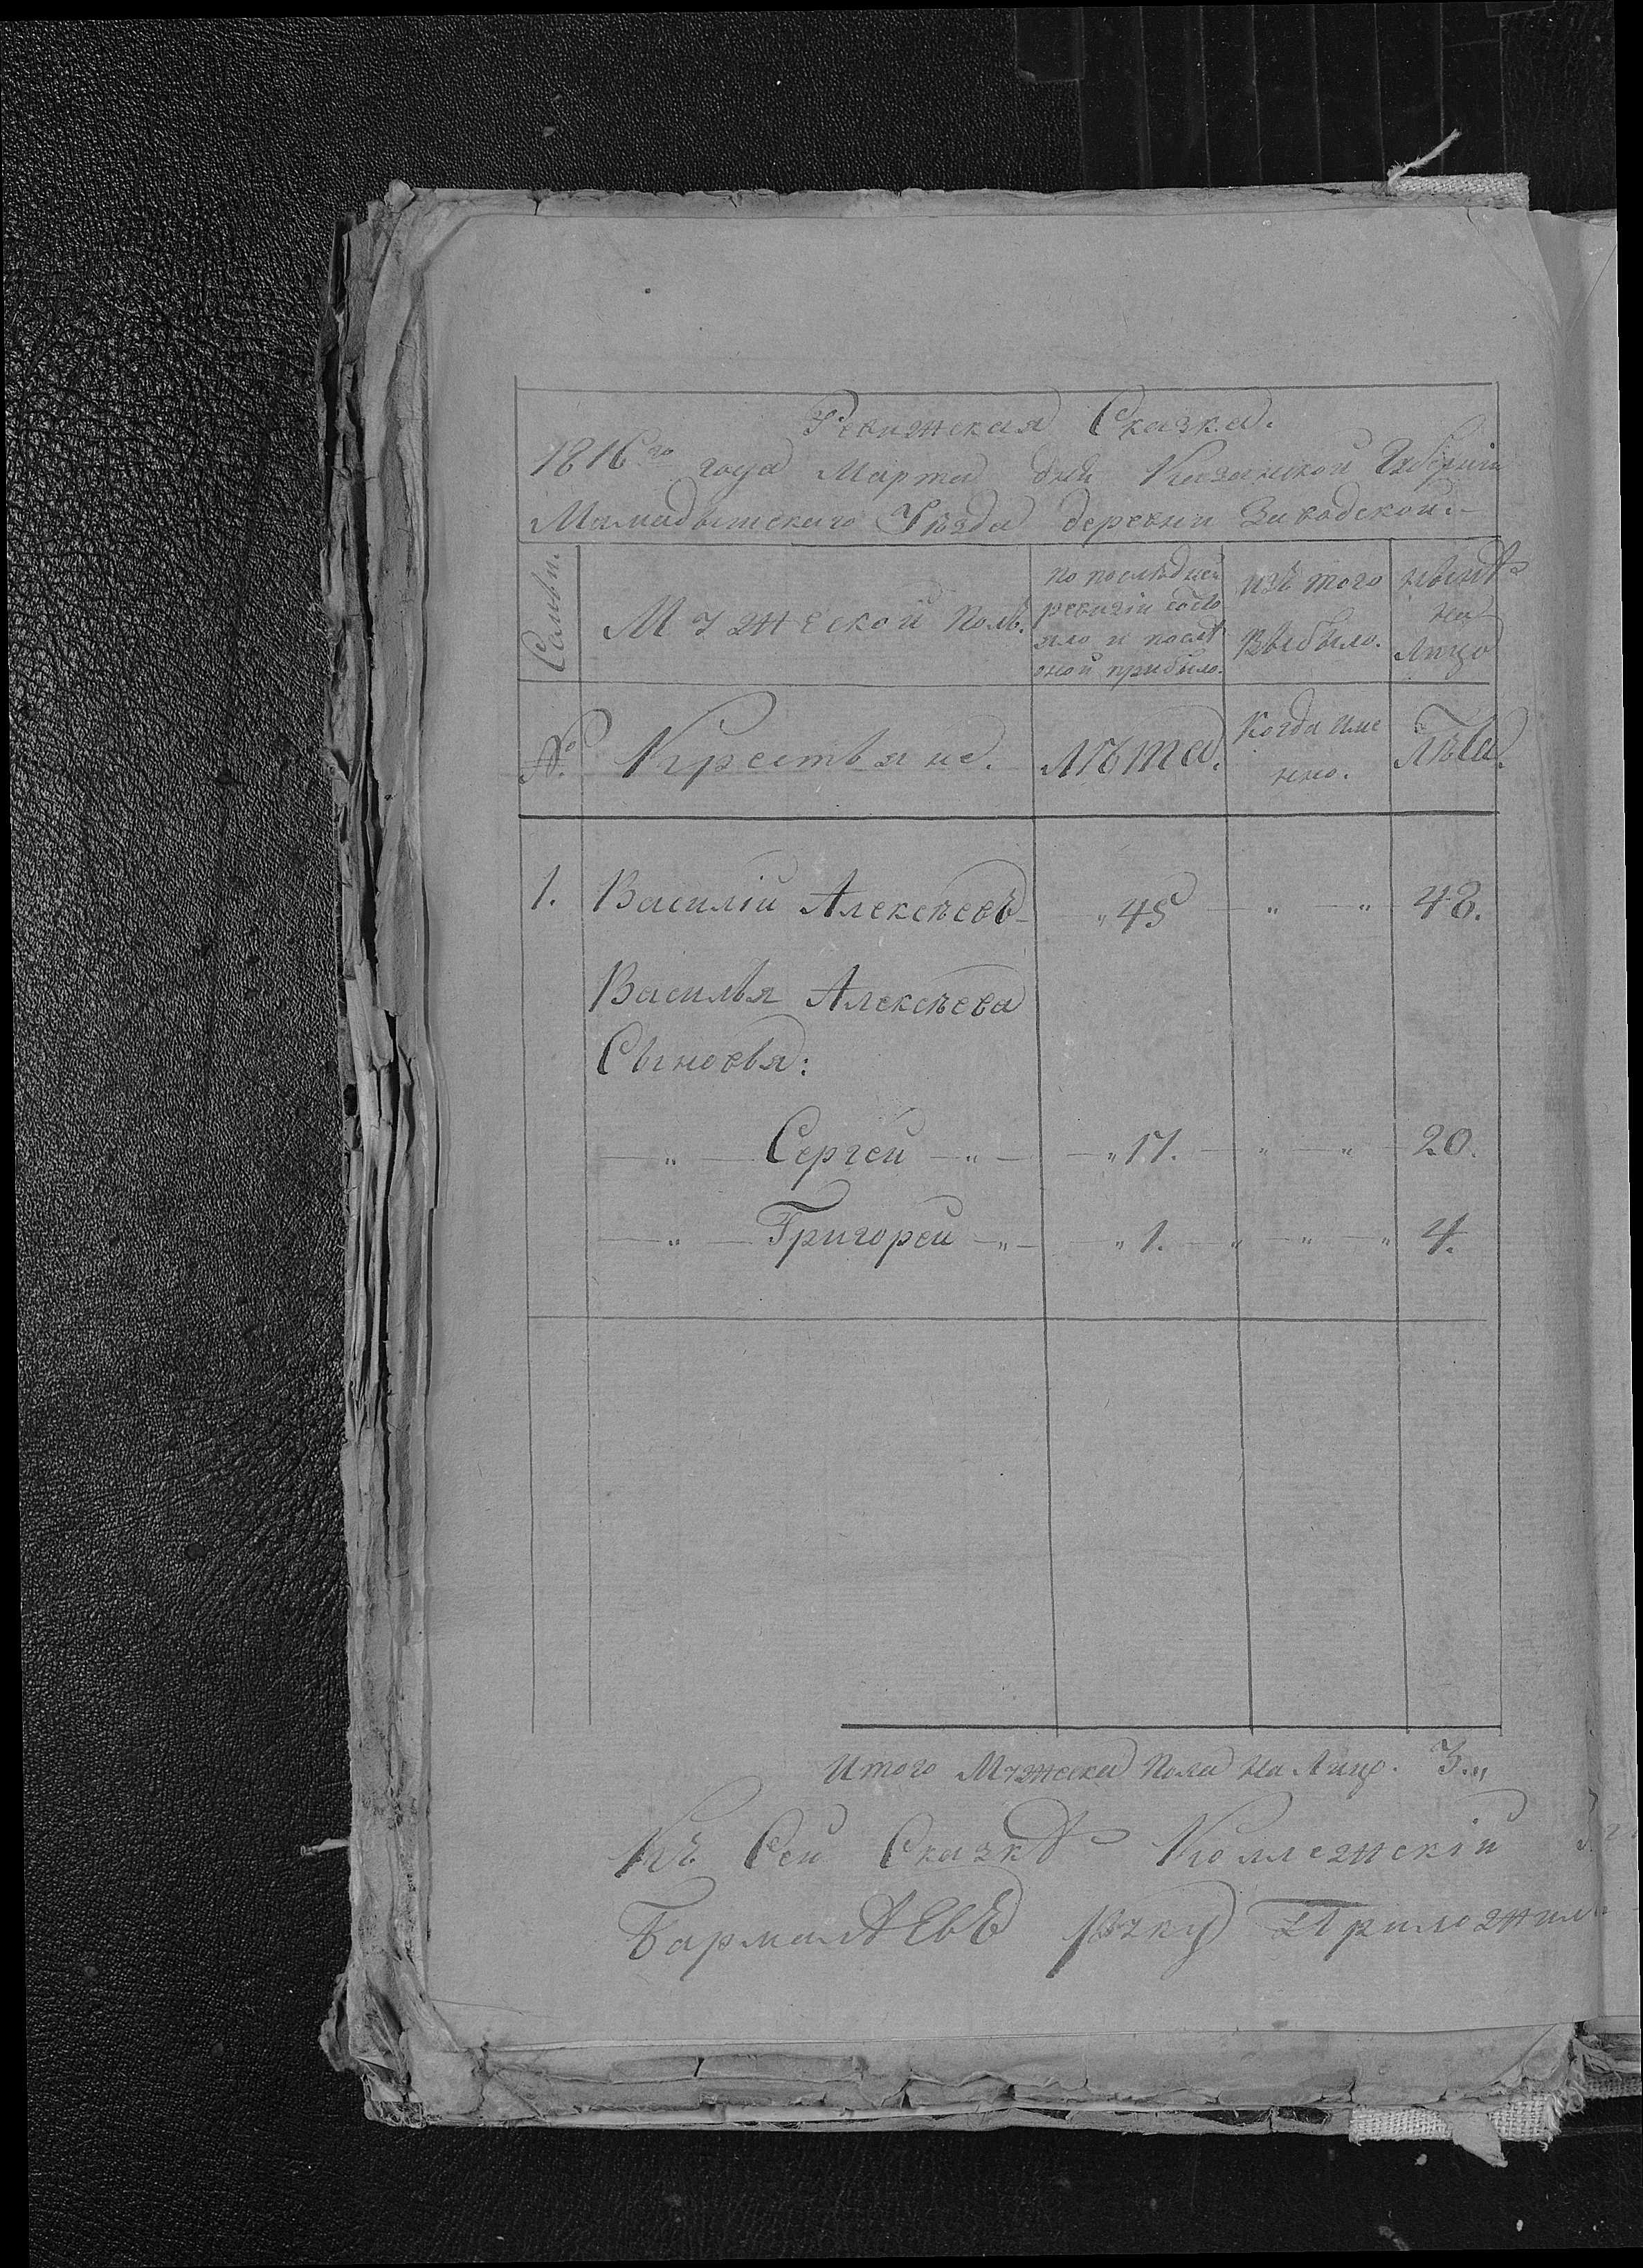 Ревижская Сказка.
1816го года Марта дня Казанской Губерніи
Мамадышскаго Уѣзда деревни Заводской.
Семьи.
Мужеской полъ.
по послѣдней
ревизіи состо
яло и послѣ
оной прибыло.
изъ того
выбыло.
нынѣ
на
лицо
№.
Крестьяне.
лѣта.
Когда име
нно.
Лѣта.
1. Василій Алексѣевъ „ 45 „ „ 48.
Василья Алексѣева
Сыновья:
„ Сергей „ „ 17. „ „ 20.
„ Григорей „ „ 1. „ „ „ 4.
Итого Мужеска пола на лицо. 3.„
Къ Сей Сказкѣ Коллежскій
руку Приложилъ